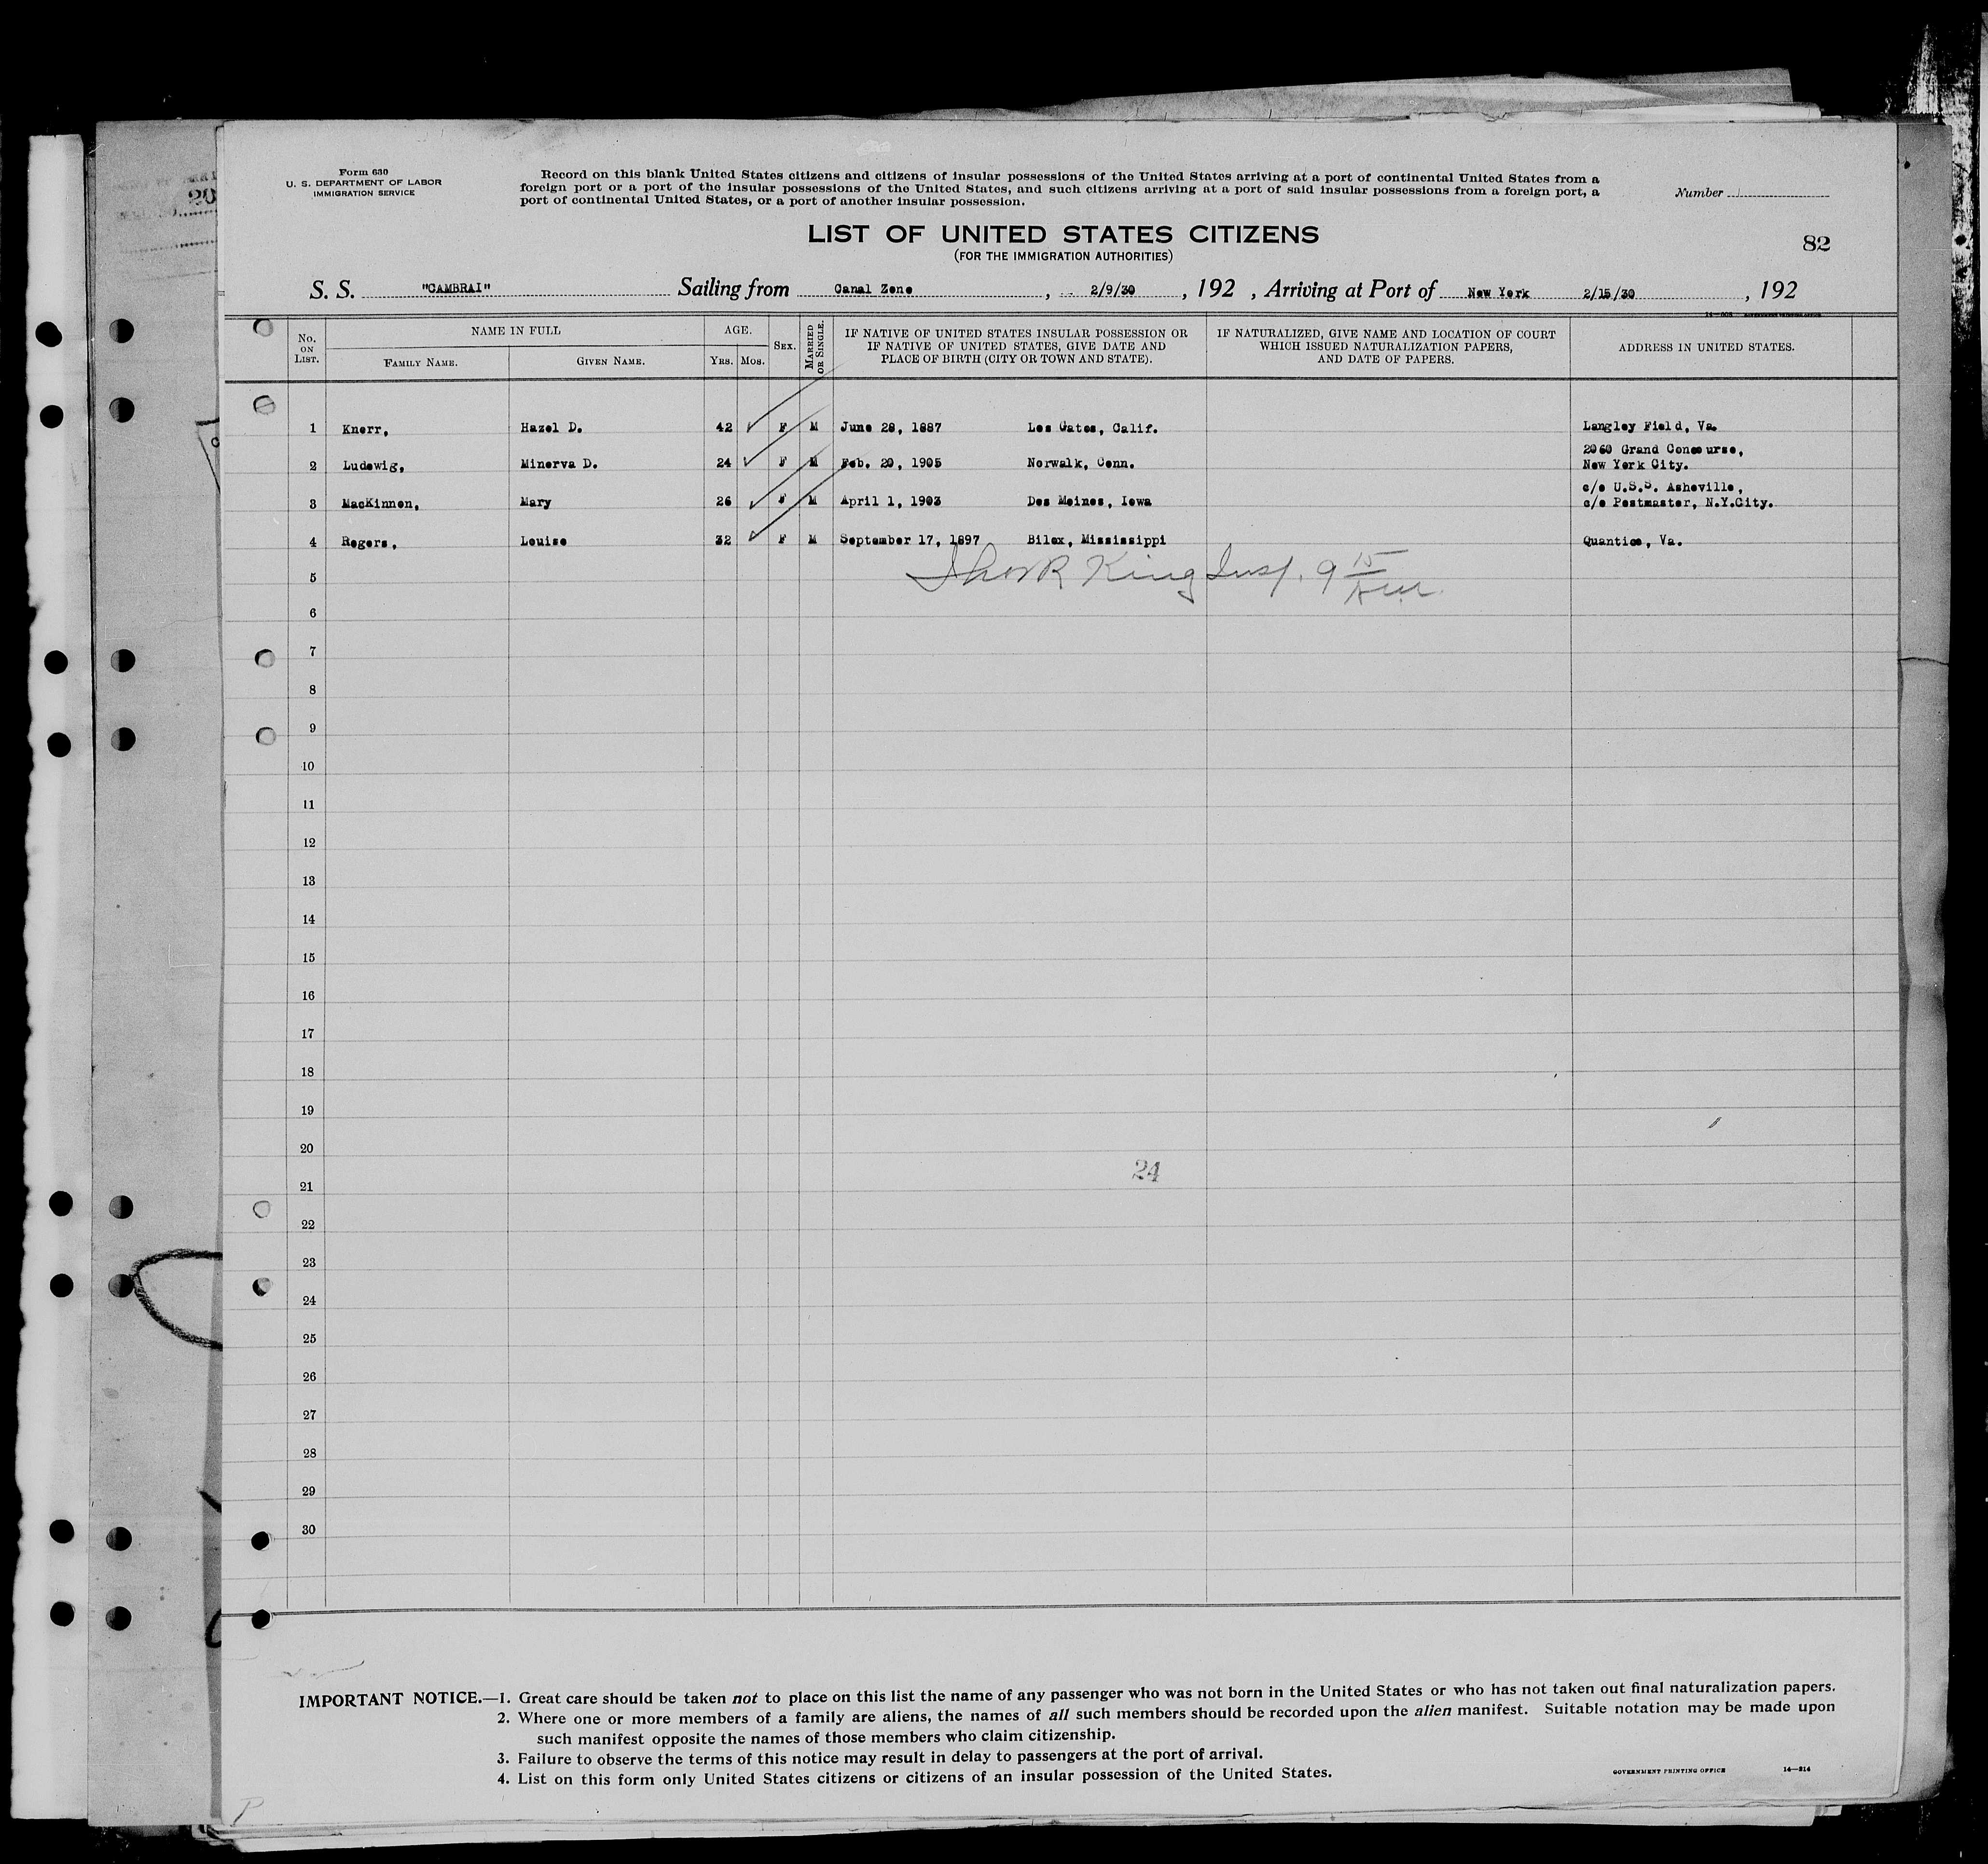 Form 630
U. S. DEPARTMENT OF LABOR
IMMIGRATION SERVICE
Record on this blank United States citizens and citizens of insular possessions of the United States arriving at a port of continental United States from a
foreign port or a port of the insular possessions of the United States, and such citizens arriving at a port of said insular possessions from a foreign port, a
port of continental United States, or a port of another insular possession.
Number
LIST OF UNITED STATES CITIZENS
(FOR THE IMMIGRATION AUTHORITIES)
82
S. S. "CAMBRAI" Sailing from Canal Zone, 2/9/30, 192 , Arriving at Port of New York 2/15/30, 192
No. ON LIST. NAME IN FULL AGE. SEX. MARRIED OR SINGLE. IF NATIVE OF UNITED STATES INSULAR POSSESSION OR IF NATIVE OF UNITED STATES, GIVE DATE AND PLACE OF BIRTH (CITY OR TOWN AND STATE). IF NATURALIZED, GIVE NAME AND LOCATION OF COURT WHICH ISSUED NATURALIZATION PAPERS, AND DATE OF PAPERS. ADDRESS IN UNITED STATES.
FAMILY NAME. GIVEN NAME. YRS. MOS.
1 Knerr, Hazel D. 42 F M June 28, 1887 Los Gatos, Calif. Langley Field, Va.
2 Ludewig, Minerva D. 24 F M Feb. 20, 1905 Norwalk, Conn. 2060 Grand Concourse,
New York City.
3 MacKinnon, Mary 26 F M April 1, 1903 Des Moines, Iowa c/o U.S.S. Asheville,
c/o Postmaster, N.Y.City.
4 Rogers, Louise 32 F M September 17, 1897 Bilox, Mississippi Quantico, Va.
5 King Insp. 9 15
6
7
8
9
10
11
12
13
14
15
16
17
18
19
20
24
21
22
23
24
25
26
27
28
29
30
IMPORTANT NOTICE.—1. Great care should be taken not to place on this list the name of any passenger who was not born in the United States or who has not taken out final naturalization papers.
2. Where one or more members of a family are aliens, the names of all such members should be recorded upon the alien manifest. Suitable notation may be made upon
such manifest opposite the names of those members who claim citizenship.
3. Failure to observe the terms of this notice may result in delay to passengers at the port of arrival.
4. List on this form only United States citizens or citizens of an insular possession of the United States.
GOVERNMENT PRINTING OFFICE 14—814
P